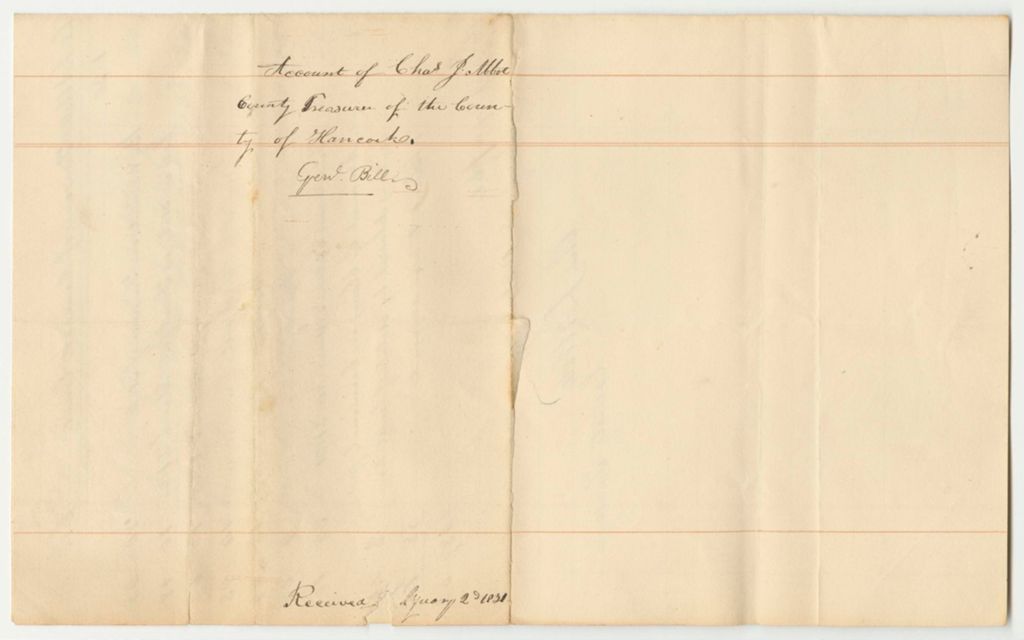 Account of Chas J. Abbot
County Treasurer of the Coun-
ty of Hancock.
Genl. Bill
Received 2d 1831